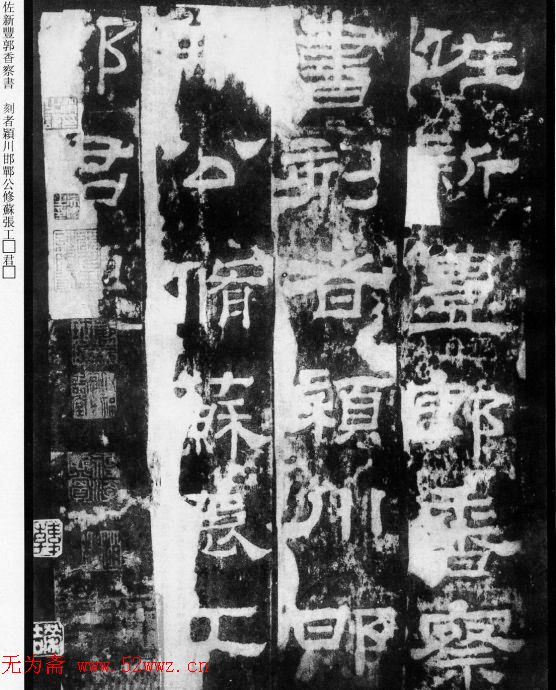 佐新豐郭香察
書刻者穎川邯
公脩蘇張工
君
佐新豐郭香察書　刻者穎川邯鄲公修蘇張工□君□
无为斋 www.52wwz.cn